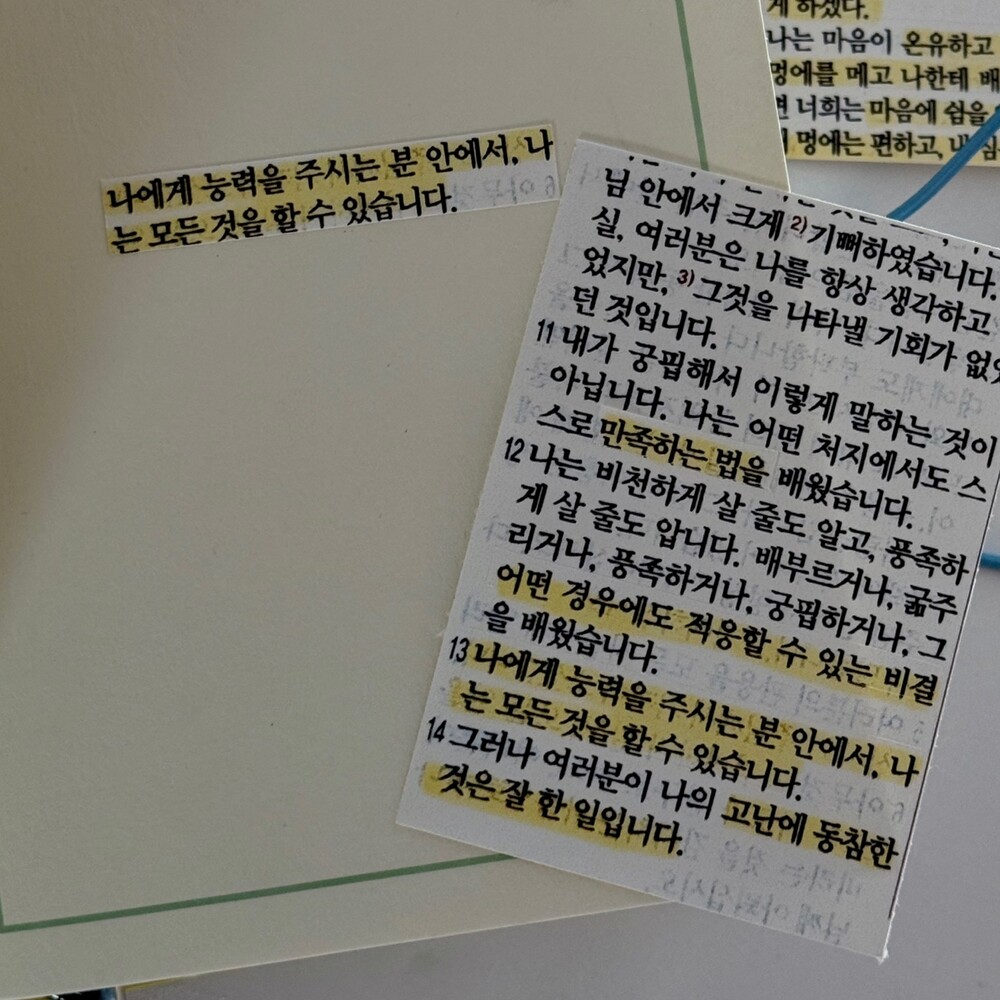 게 하겠다.
나는 마음이 온유하고
멍에를 메고 나한테 배
너희는 마음에 쉼을
멍에는 편하고, 내
나에게 능력을 주시는 분 안에서, 나
는 모든 것을 할 수 있습니다.
님 안에서 크게 2)기뻐하였습니다.
실, 여러분은 나를 항상 생각하고
었지만, 3)그것을 나타낼 기회가 없었
던 것입니다.
11 내가 궁핍해서 이렇게 말하는 것이
아닙니다. 나는 어떤 처지에서도 스
스로 만족하는 법을 배웠습니다.
12 나는 비천하게 살 줄도 알고, 풍족하
게 살 줄도 압니다. 배부르거나, 굶주
리거나, 풍족하거나, 궁핍하거나, 그
어떤 경우에도 적응할 수 있는 비결
을 배웠습니다.
13 나에게 능력을 주시는 분 안에서, 나
는 모든 것을 할 수 있습니다.
14 그러나 여러분이 나의 고난에 동참한
것은 잘 한 일입니다.